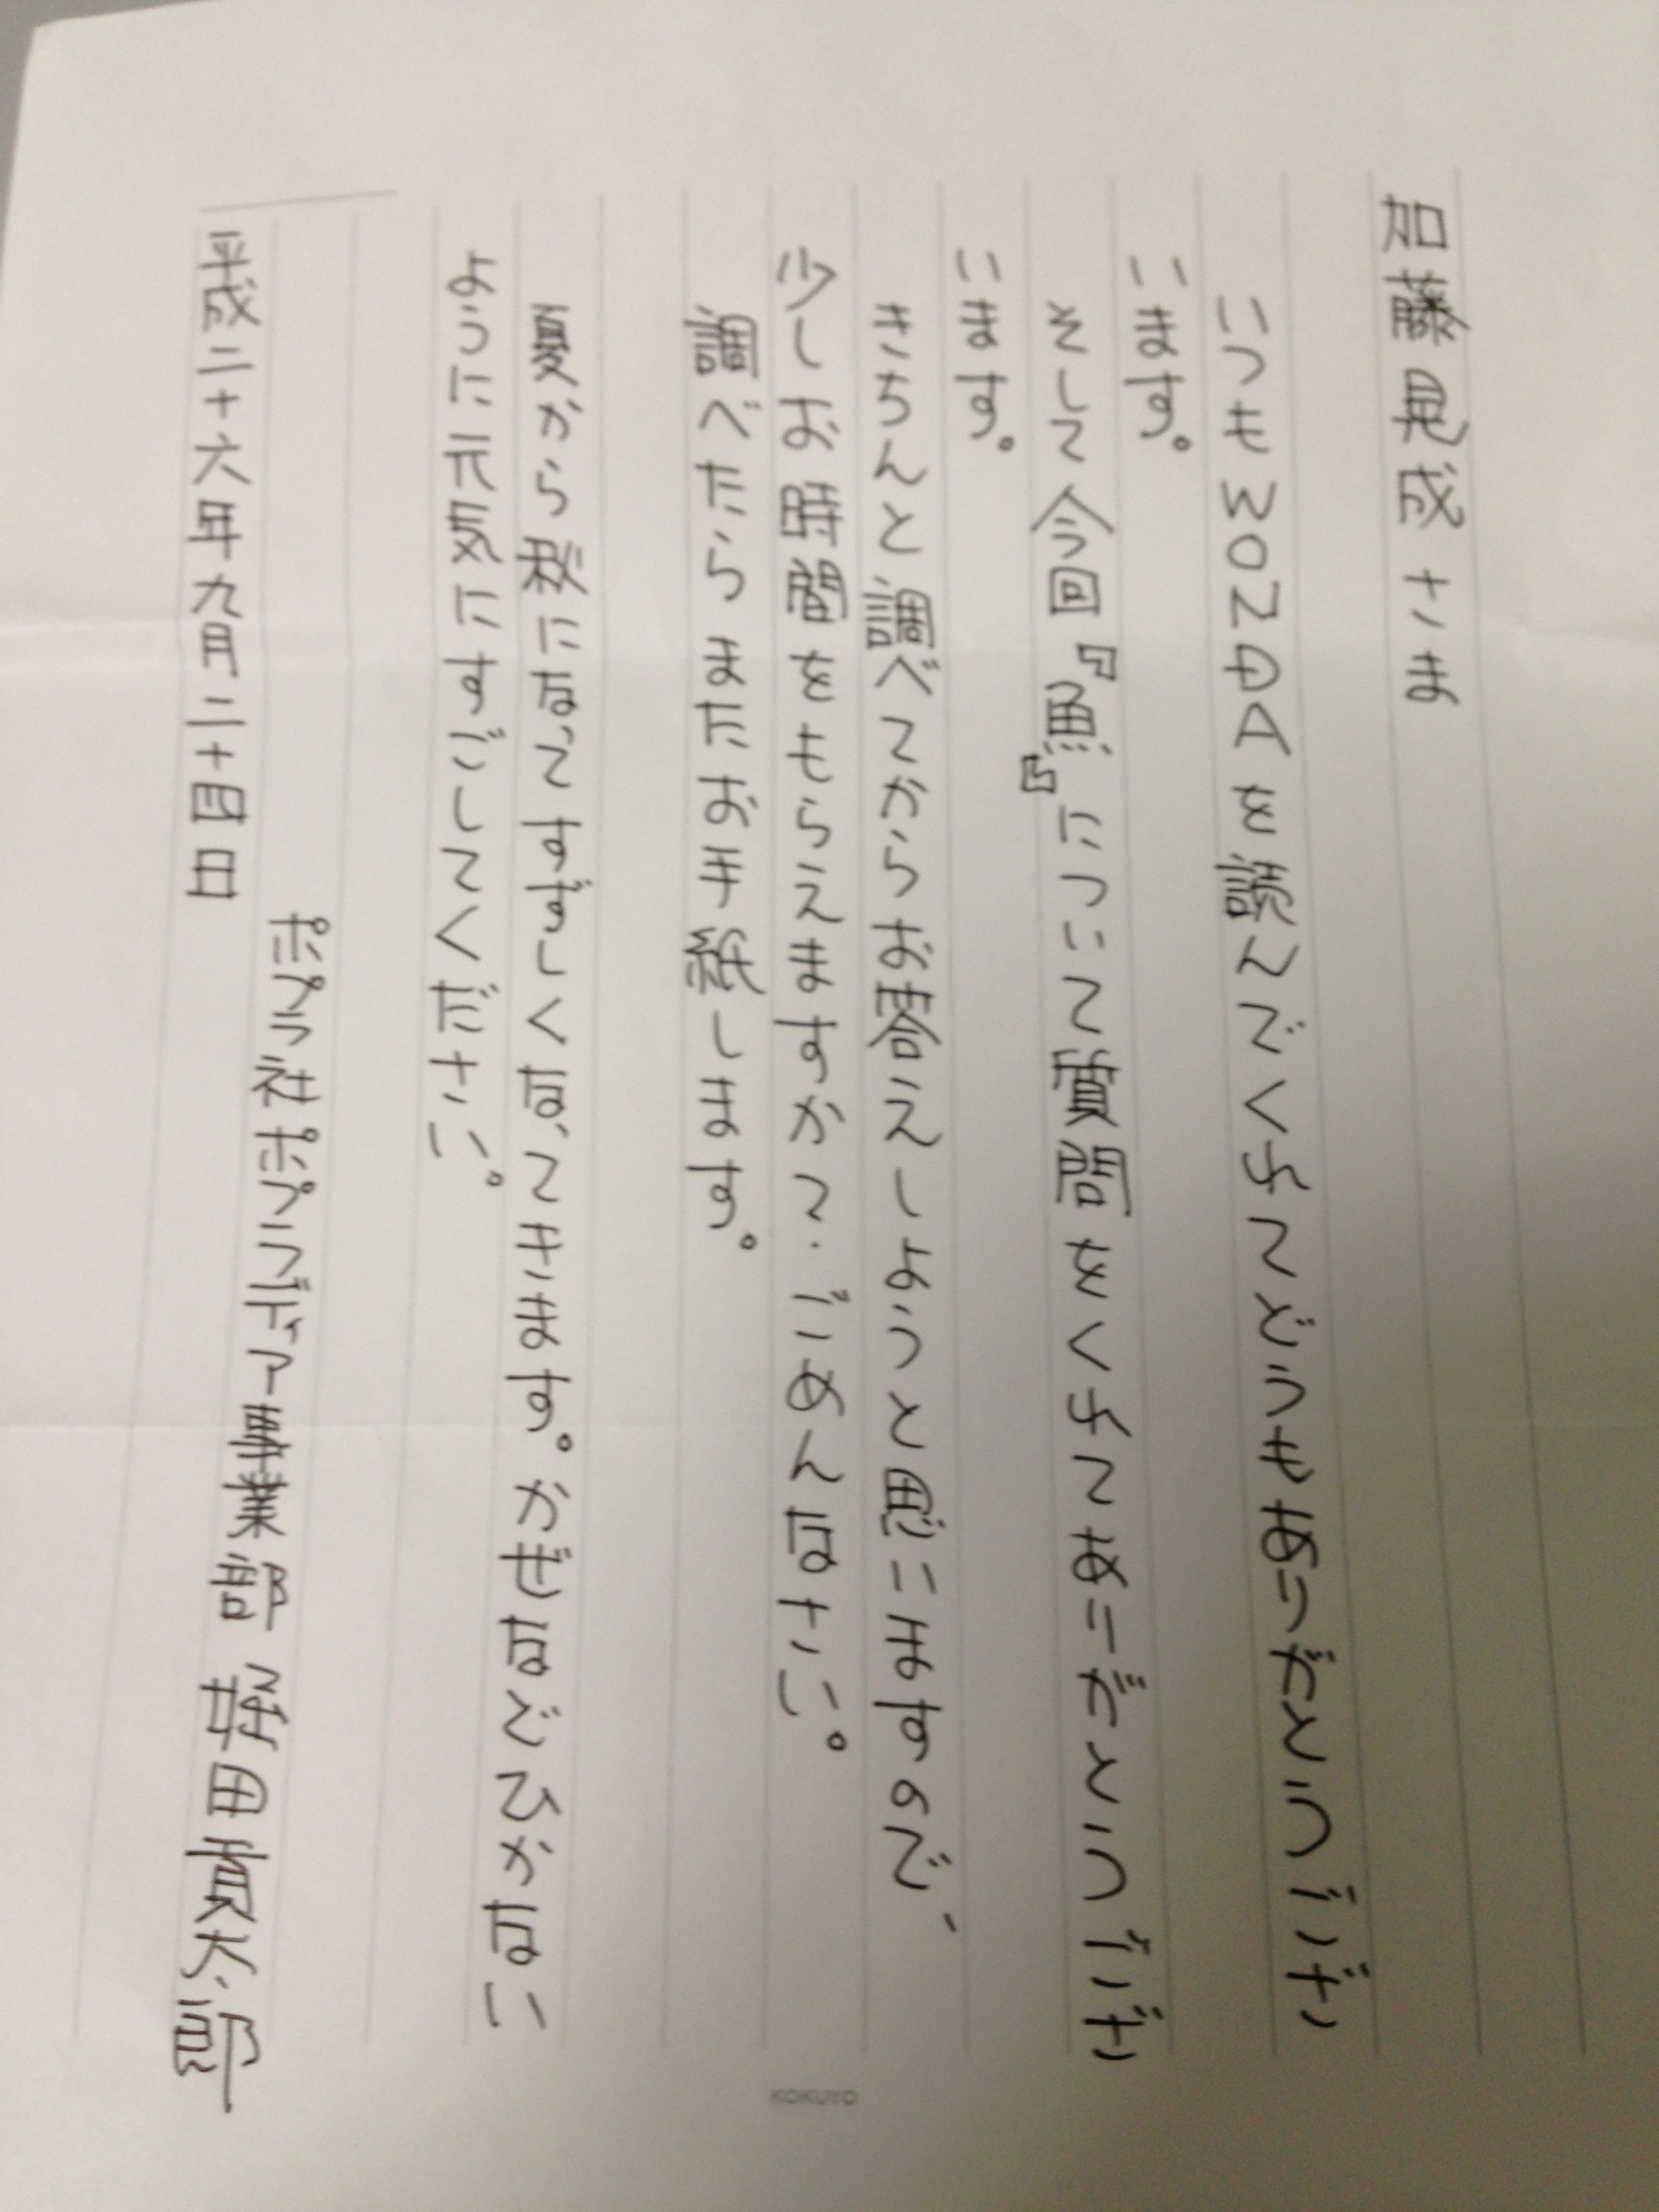 加藤晃成さま
いつもWONDAを読んでくれてどうもありがとうござ
います。
そして今回『魚』について質問をくれてありがとうござ
います。
きちんと調べてからお答えしようと思いますので、
少しお時間をもらえますかて・ごめんなさい。
調べたらまたお手紙します。
夏から秋になってすずしくなってきます。かぜなどひかない
ように元気にすごしてください。
ポプラ社ポプラディア事業部 堀田貢太郎
平成二十六年九月二十四日
KOKUYO